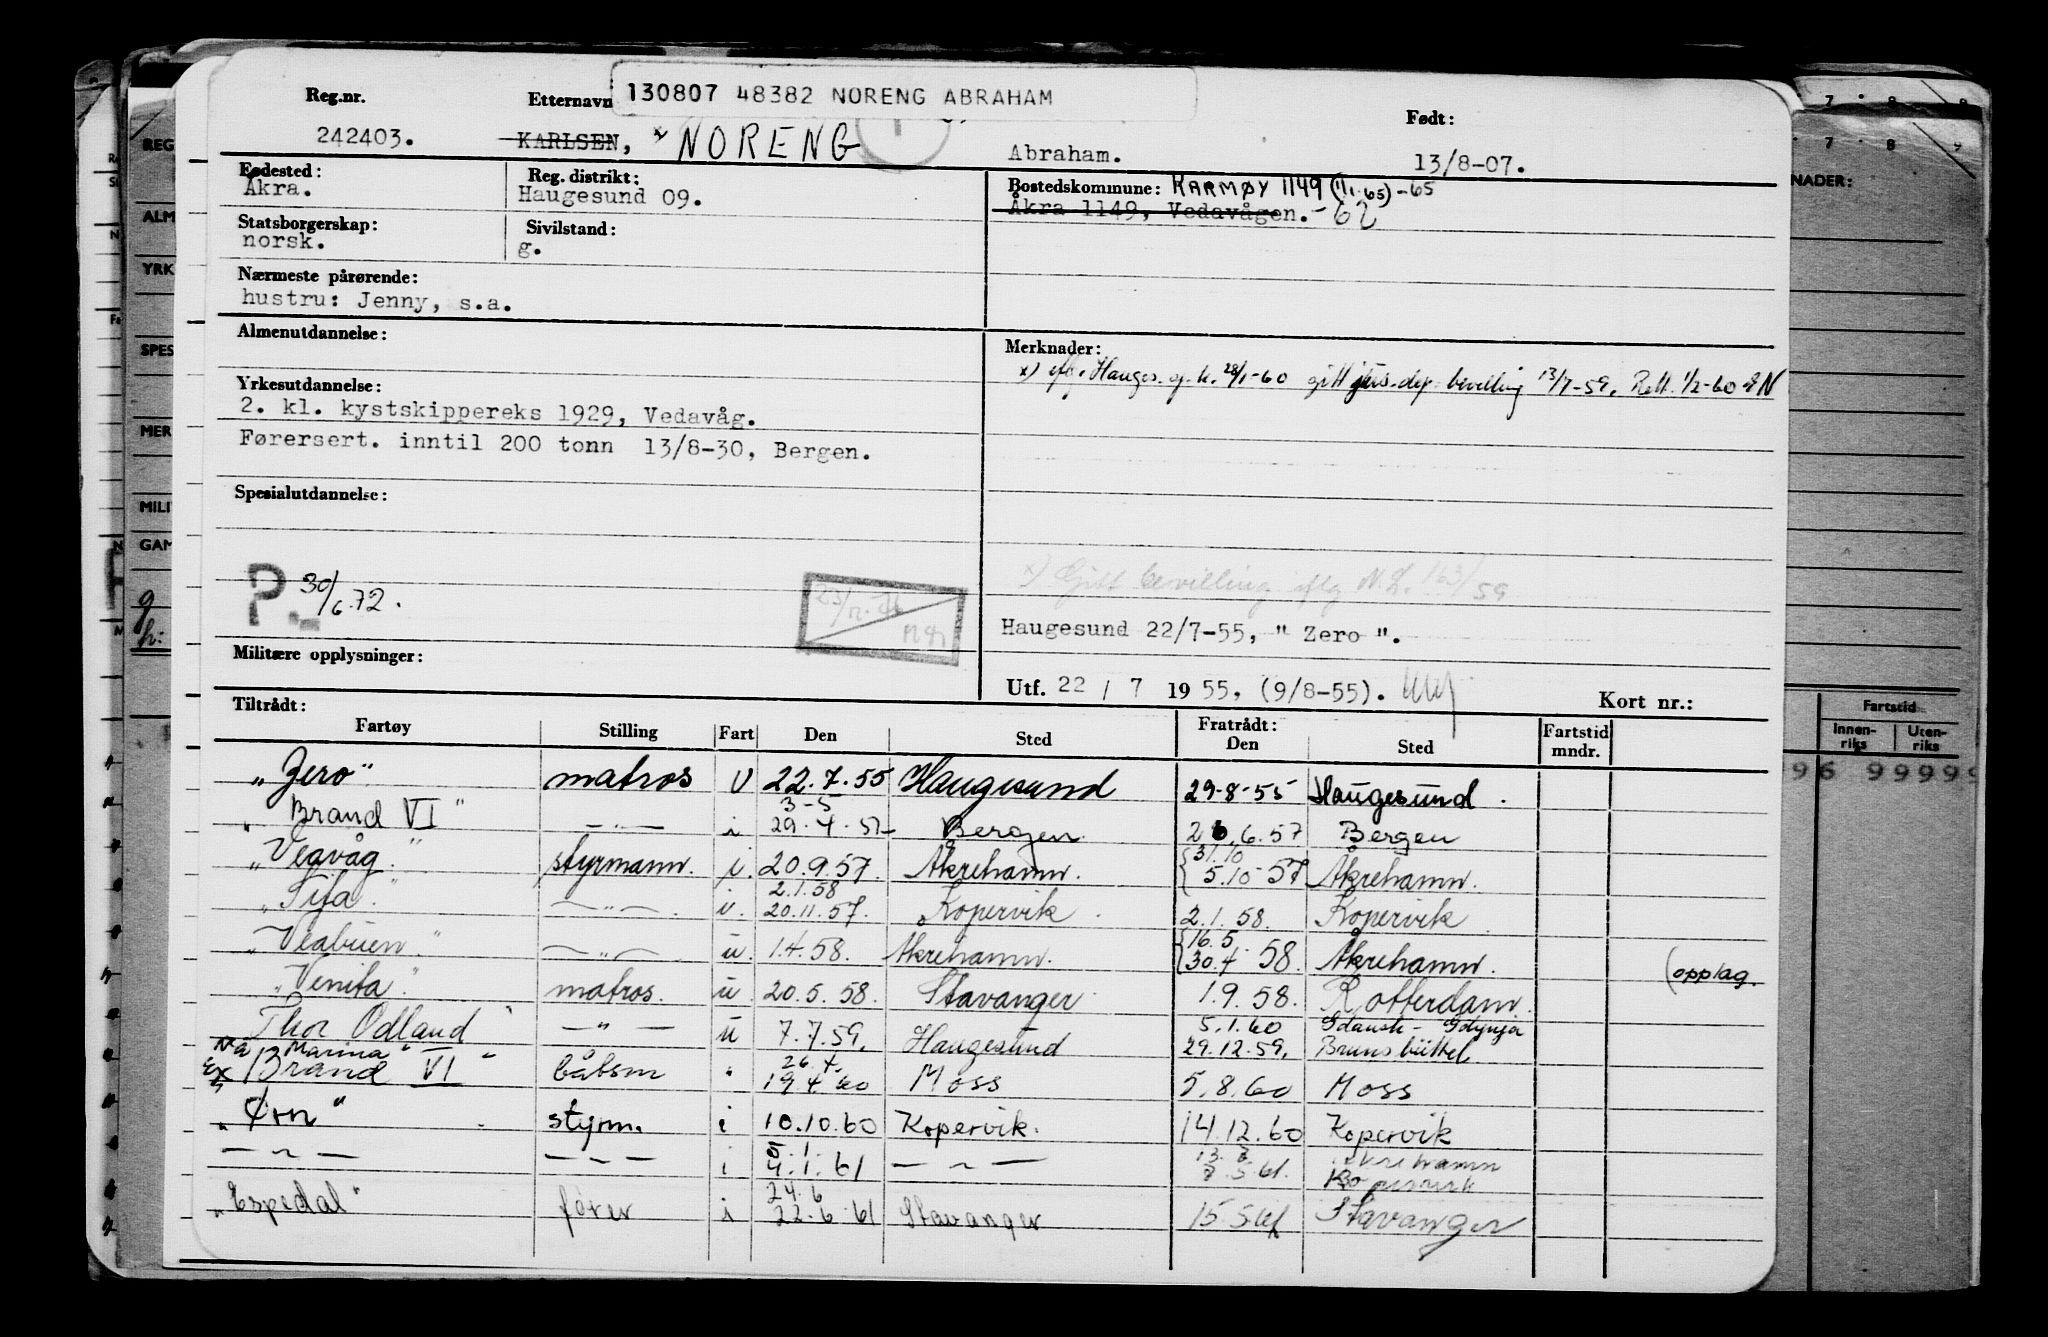 130807 48382 NORENG ABRAHAM
Reg.nr. Etternavn Født:
242403. KARLSEN, x NORENG Abraham. 13/8-07.
Fødested: Reg. distrikt: Bostedskommune: KARMØY 1149 (1/1-65) -65
Åkra. Haugesund 09. Åkra 1149, Vedavågen. -62
Statsborgerskap: Sivilstand:
norsk. g.
Nærmeste pårørende:
hustru: Jenny, s.a.
Almenutdannelse: Merknader:
x) iflg. Hauges. 28/1-60 gitt jus.dep. bevilling 13/7-59. Rett. 1/2-60 N
Yrkesutdannelse:
2. kl. kystskippereks 1929, Vedavåg.
Førersert. inntil 200 tonn 13/8-30, Bergen.
Spesialutdannelse:
P. 30/6.72.
x) Gitt bevilling iflg N.L. 163/59
Haugesund 22/7-55, " Zero ".
Militære opplysninger:
Utf. 22 / 7 1955, (9/8-55). Kort nr.:
Tiltrådt: Fratrådt:
Fartøy Stilling Fart Den Sted Den Sted Fartstid mndr.
"Zero" matros u 22.7.55 Haugesund 29-8-55 Haugesund.
3-5
"Brand VI" -"- i 29.4.57 Bergen. 26.6.57 Bergen
31.10
"Veavåg." styrmann. i. 20.9.57. Åkrehamn. 5.10-57 Åkrehamn.
2.1.58
"Sifa." -"-. u. 20.11.57. Kopervik. 2.1.58. Kopervik
16.5
"Veabuen." -"- u. 1.4.58. Åkrehamn. 30.4 58. Åkrehamn. (opplag.
"Venita." matros. u 20.5.58. Stavanger 1.9.58. Rotterdam.
5.1.60 Gdansk - Gdynia
Thor Odland" -"- u 7.7.59. Haugesund 29.12.59. Brunsbüttel
Nå Marina" 26.4.
Ex Brand VI" båtsm " 19.4.60 Moss 5.8.60 Moss
"Ørn" styrm. i 10.10.60 Kopervik. 14.12.60 Kopervik
5.1. 13. Åkrehamn
-"- -"- i 4.1.61 -"- 5.61. Kopervik
24.6
"Espedal" fører i 22.6.61 Stavanger 15.5 Stavanger
REG
ALM
YRK
SPES
MER
MILI
NADER:
Fartstid
Innenriks Utenriks